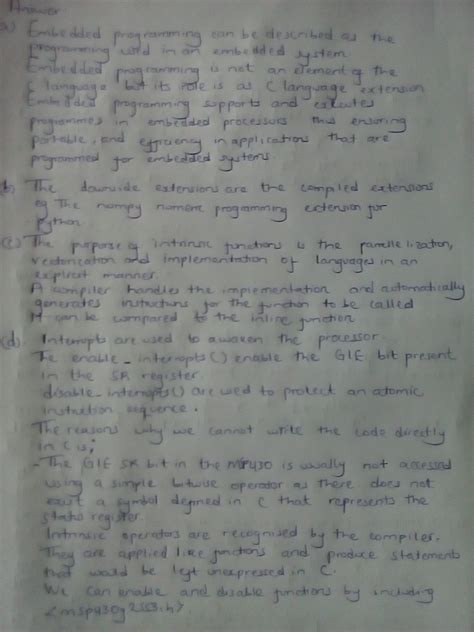 Answer
a) Embedded programming can be described as the
programming used in an embedded system
Embedded programming is not an element of the
C language but its role is as C language extension
Embedded programming supports and executes
programmes in embedded processors thus ensuring
portable, and efficiency in applications that are
programmed for embedded systems
b) The downside extensions are the compiled extensions
eg The nompy numeric programming extension for
python
(c) The purpose of intrinsic functions is the parallelization,
vectorization and implementation of languages in an
explicit manner.
A compiler handles the implementation and automatically
generates instructions for the function to be called
It can be compared to the inline function
(d) Interrupts are used to awaken the processor
The enable_interrupts() enable the GIE bit present
in the SR register.
disable_interrupts() are used to protect an atomic
instruction sequence.
The reasons why we cannot write the code directly
in C is;
- The GIE SR bit in the MSP430 is usually not accessed
using a simple bitwise operator as there does not
exist a symbol defined in C that represents the
status register.
Intrinsic operators are recognised by the compiler.
They are applied like functions and produce statements
that would be left unexpressed in C.
We can enable and disable functions by including
<msp430g2553.h>